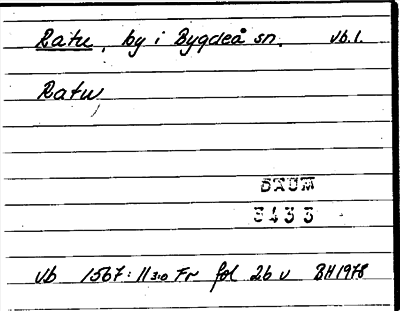 Ratu, by i Bygdeå sn. vb.l.
Ratw
DAUM
3433
vb 1567: 11 3:0 Fr fol 26 v BH 1978